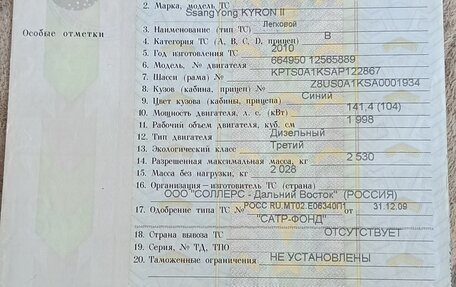 2. Марка, модель ТС
SsangYong KYRON II
3. Наименование (тип ТС) Легковой
Особые отметки
4. Категория ТС (A, B, C, D, прицеп) B
5. Год изготовления ТС 2010
6. Модель, № двигателя 664950 12565889
7. Шасси (рама) № KPTS0A1KSAP122867
8. Кузов (кабина, прицеп) № Z8US0A1KSA0001934
9. Цвет кузова (кабины, прицепа) Синий
10. Мощность двигателя, л. с. (кВт) 141,4 (104)
11. Рабочий объем двигателя, куб. см 1 998
12. Тип двигателя Дизельный
13. Экологический класс Третий
14. Разрешенная максимальная масса, кг 2 530
15. Масса без нагрузки, кг 2 028
16. Организация—изготовитель ТС (страна)
ООО "СОЛЛЕРС - Дальний Восток" (РОССИЯ)
17. Одобрение типа ТС № РОСС RU.МТ02.Е06340П1 от 31.12.09
"САТР-ФОНД"
18. Страна вывоза ТС ОТСУТСТВУЕТ
19. Серия, № ТД, ТПО
20. Таможенные ограничения НЕ УСТАНОВЛЕНЫ